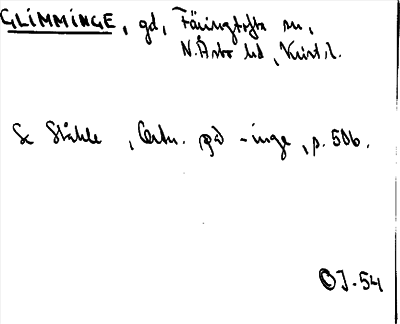 GLIMMINGE, gd, Färingtofta sn,
N. Åsbo hd, Krist. l.
Se Ståhle, Ortn. på -inge, p. 506.
OJ-54